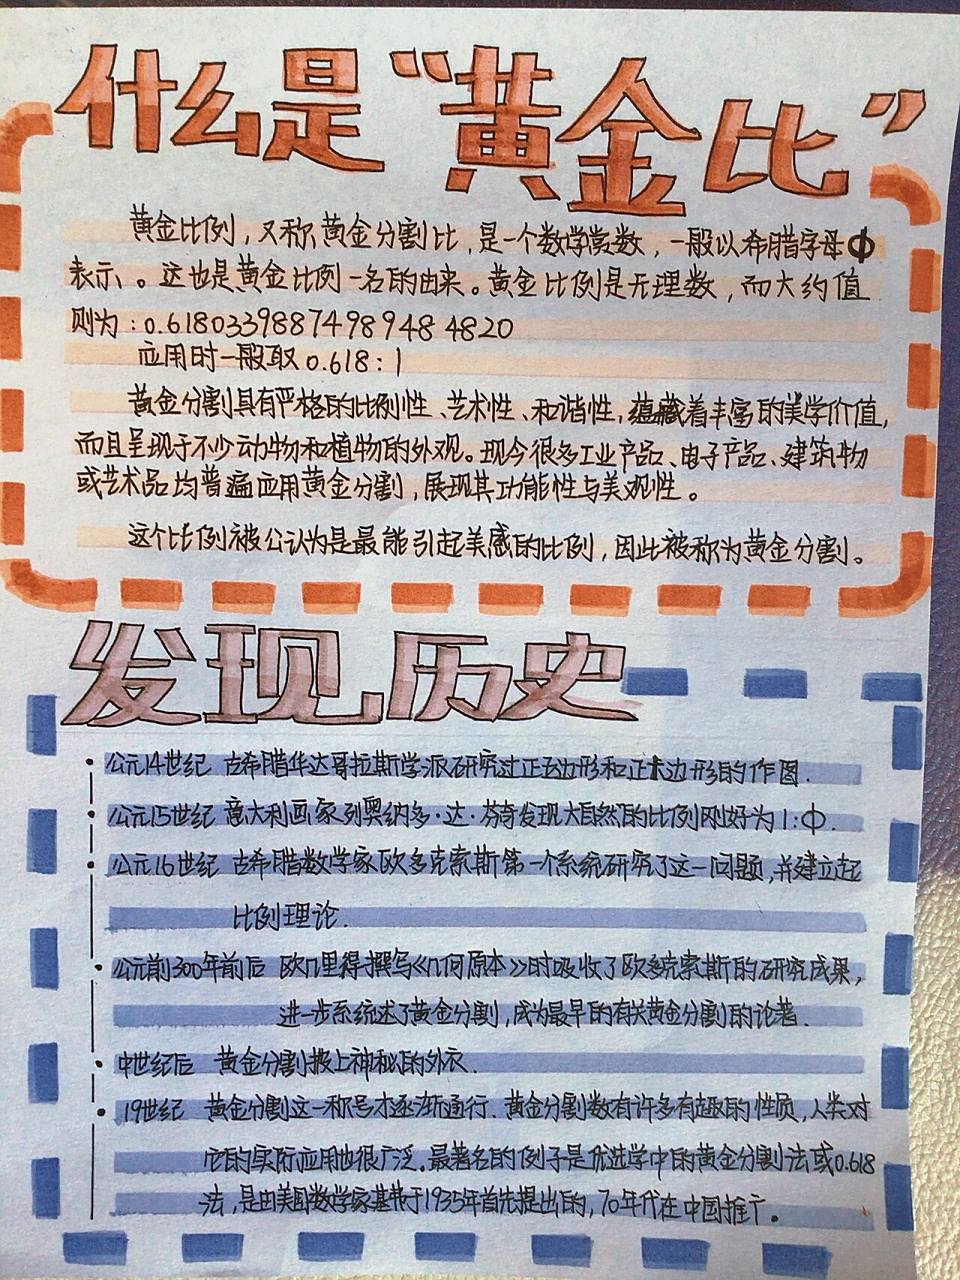 什么是“黄金比”
黄金比例，又称黄金分割比，是一个数学常数，一般以希腊字母Φ
表示。这也是黄金比例一名的由来。黄金比例是无理数，而大约值
则为：0.6180339887498948 4820
应用时一般取0.618：1
黄金分割具有严格的比例性、艺术性、和谐性，蕴藏着丰富的美学价值，
而且呈现于不少动物和植物的外观。现今很多工业产品、电子产品、建筑物
或艺术品均普遍应用黄金分割，展现其功能性与美观性。
这个比例被公认为是最能引起美感的比例，因此被称为黄金分割。
发现历史
公元14世纪 古希腊华达哥拉斯学派研究过正五边形和正术边形的作图.
公元15世纪 意大利画家列奥纳多·达·芬奇发现大自然的比例刚好为1:Φ.
公元16世纪 古希腊数学家欧多克索斯第一个系统研究了这一问题，并建立起
比例理论.
公元前300年前后 欧几里得撰写《几何原本》时吸收了欧多克索斯的研究成果，
进一步系统述了黄金分割，成为最早的有关黄金分割的论著.
中世纪后 黄金分割披上神秘的外衣.
19世纪 黄金分割这一称号才逐渐通行.黄金分割数有许多有趣的性质，人类对
它的实际应用也很广泛.最著名的例子是优选学中的黄金分割法或0.618
法，是由美国数学家基弗于1935年首先提出的，70年代在中国推广.